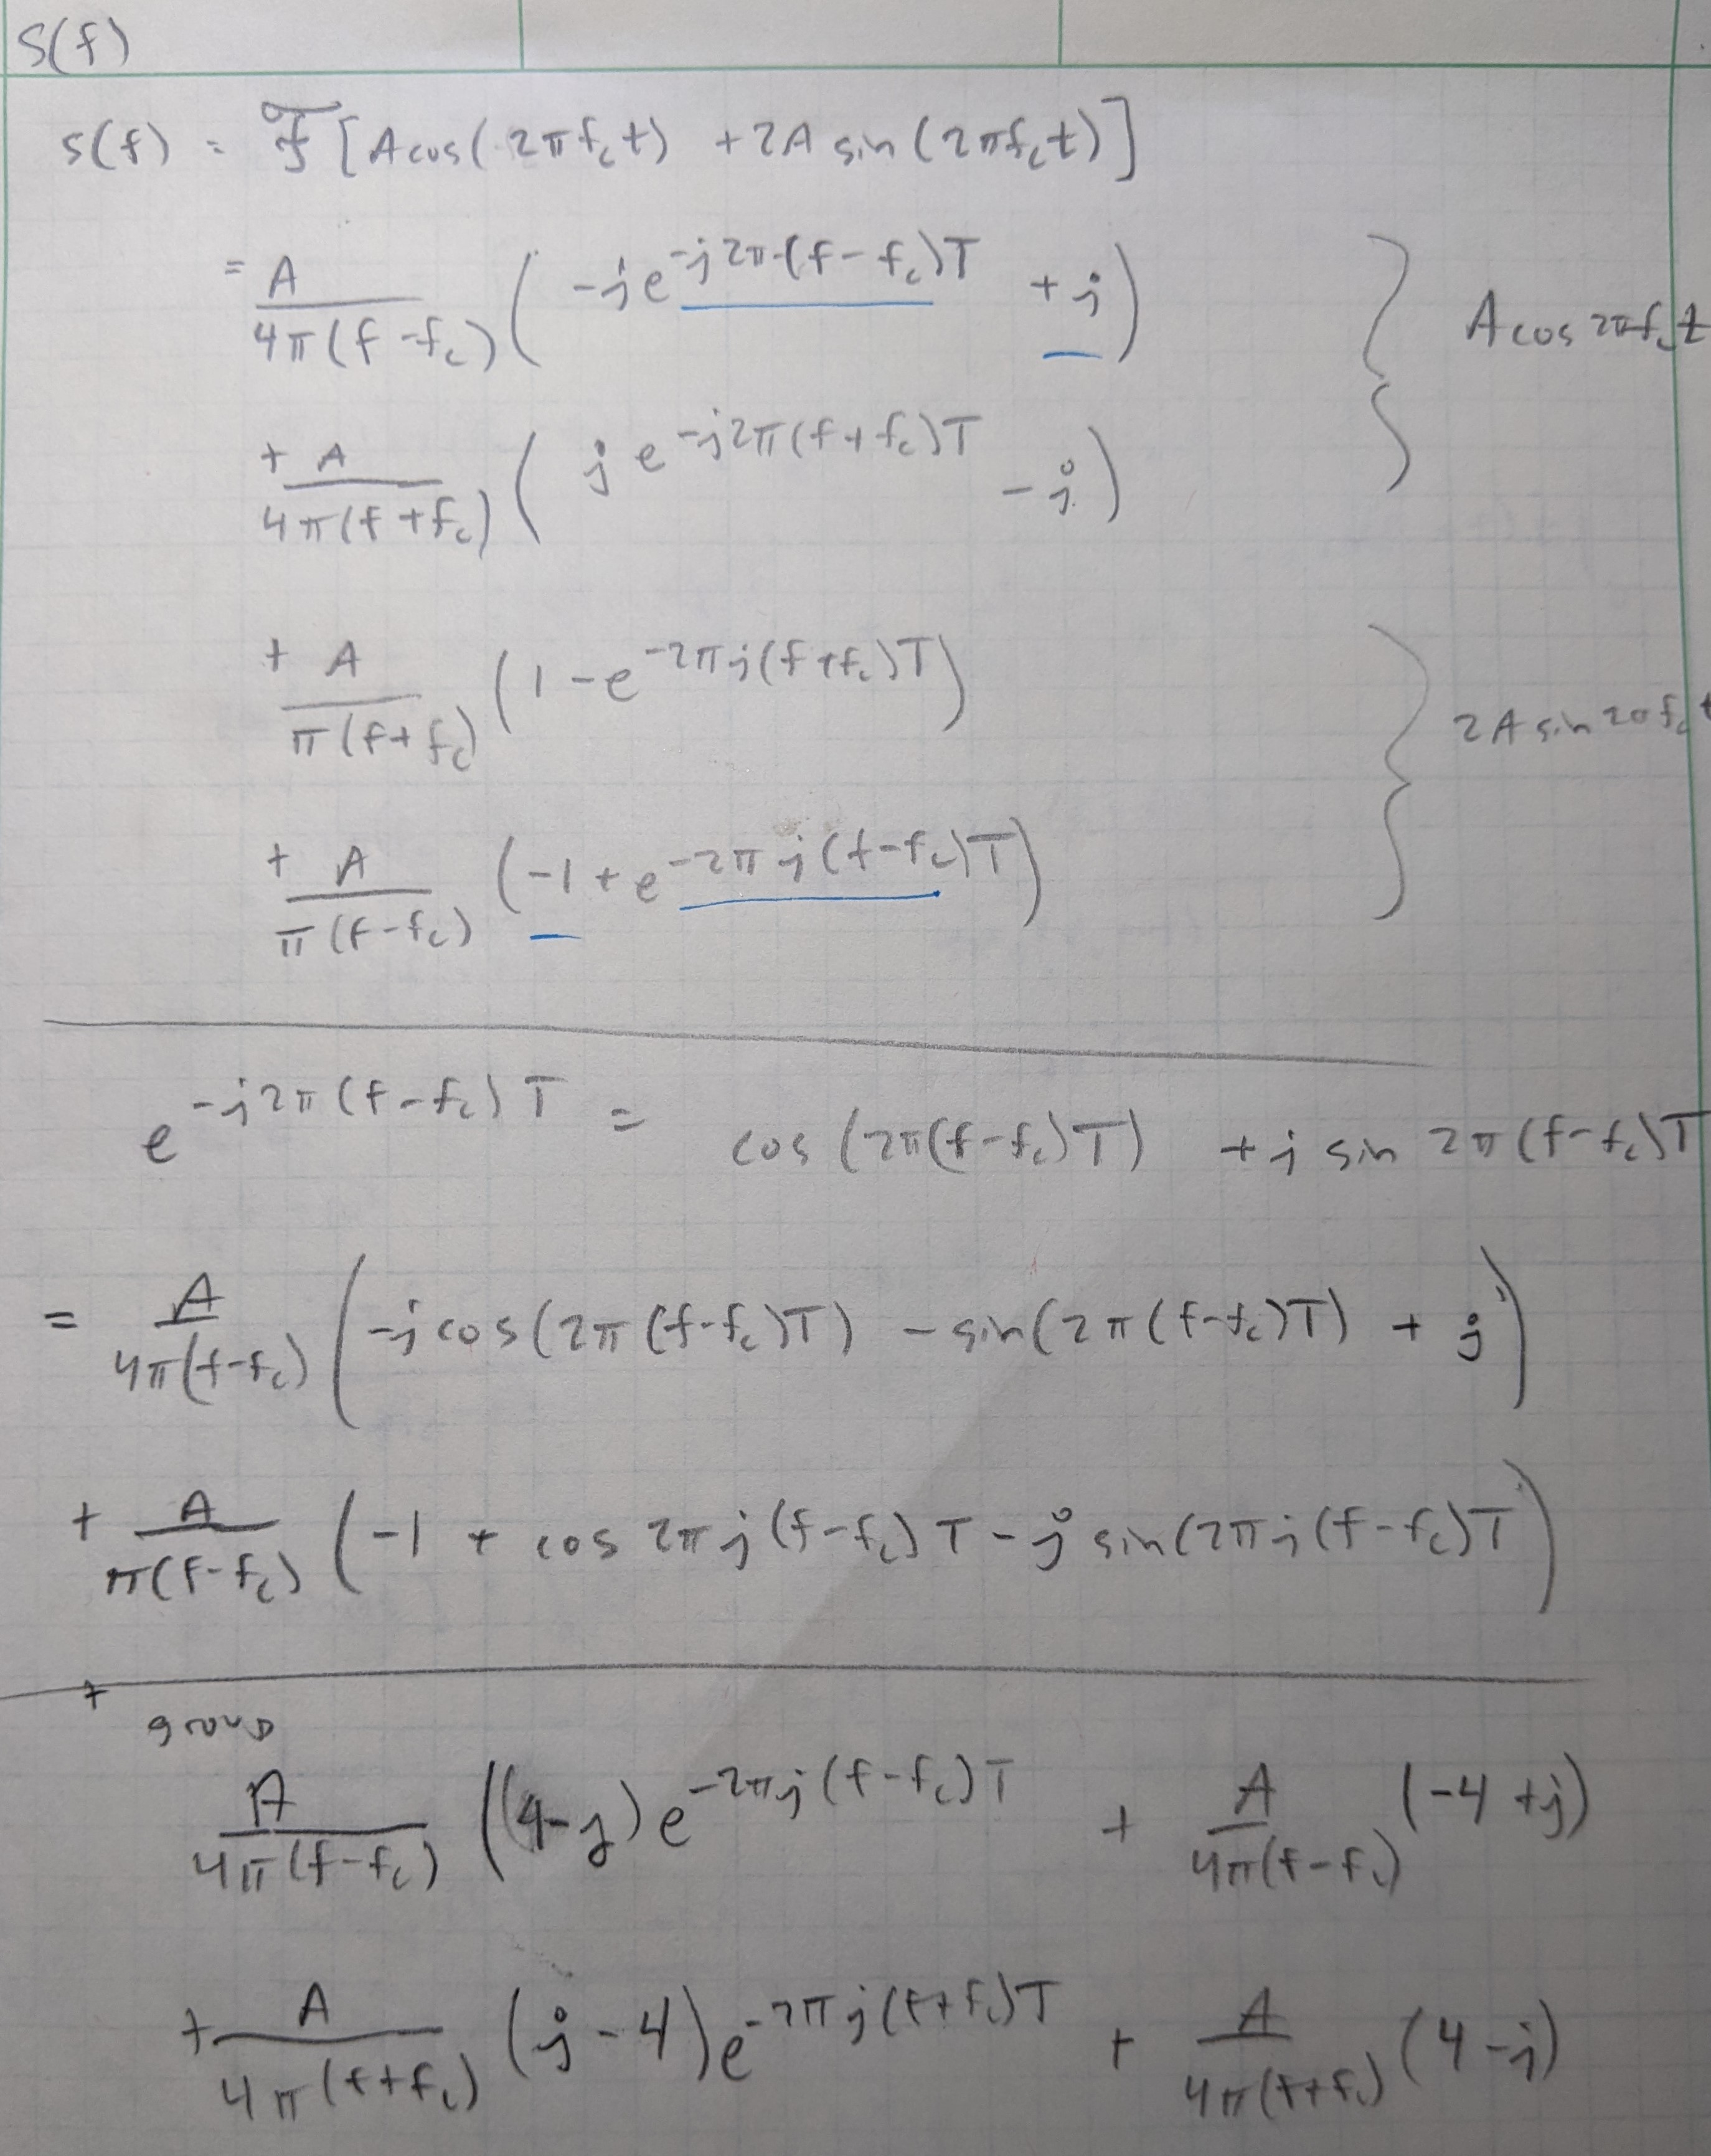 S(f)
s(f) = F [Acos(2πf_c t) + 2A sin(2πf_c t)]
= A/4π(f-f_c) ( -je^{-j2π(f-f_c)T} + j )
A cos 2πf_c t
+ A/4π(f+f_c) ( j e^{-j2π(f+f_c)T} - j )
+ A/π(f+f_c) (1 - e^{-2πj(f+f_c)T})
2A sin 2πf_c t
+ A/π(f-f_c) (-1 + e^{-2πj(f-f_c)T})
e^{-j2π(f-f_c)T} = cos(2π(f-f_c)T) + j sin 2π(f-f_c)T
= A/4π(f-f_c) ( -j cos(2π(f-f_c)T) - sin(2π(f-f_c)T) + j )
+ A/π(f-f_c) ( -1 + cos 2πj(f-f_c)T - j sin(2πj(f-f_c)T )
+
group
A/4π(f-f_c) ((4-j)e^{-2πj(f-f_c)T} + A/4π(f-f_c) (-4+j)
+ A/4π(f+f_c) (j-4)e^{-2πj(f+f_c)T} + A/4π(f+f_c) (4-j)